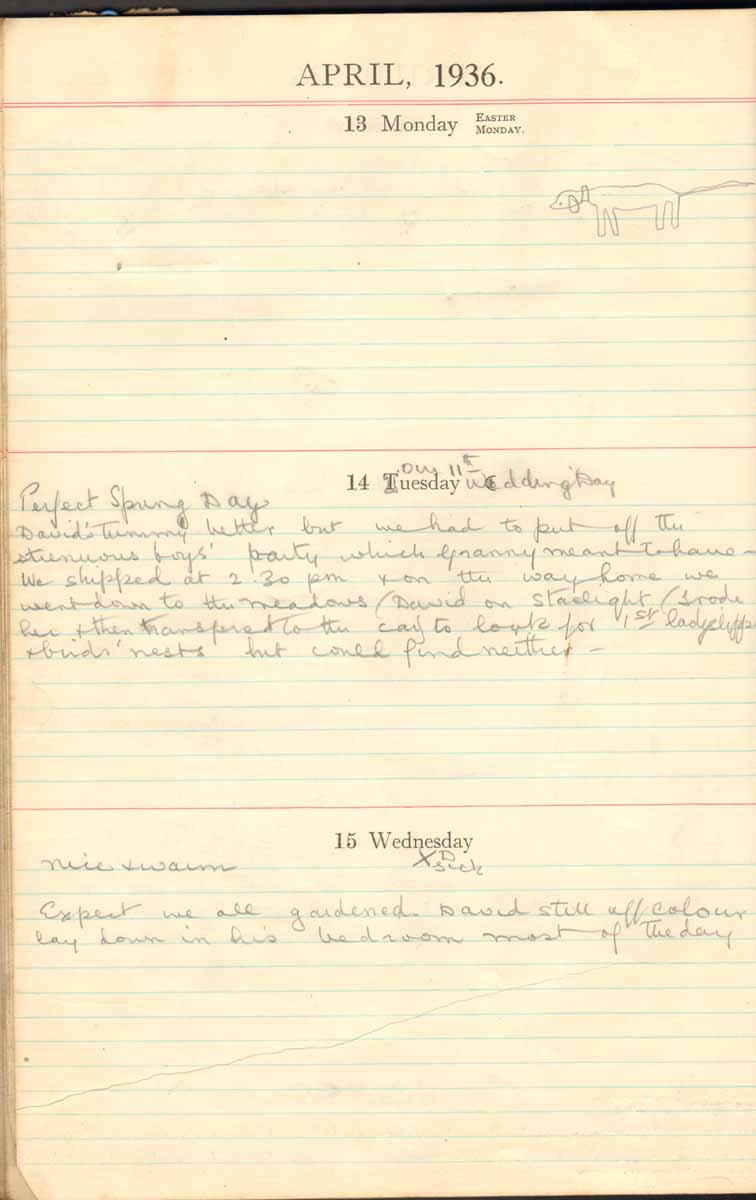 APRIL, 1936.
13 Monday EASTER MONDAY.
14 Tuesday Our 11th Wedding Day
Perfect Spring Day
David's Tummy better but we had to put off the
strenuous boys' party which Granny meant to have –
We shipped at 2.30 pm & on the way home we
went down to the meadows (David on Starlight / I rode
her & then transfered to the car) to look for 1st ladyslipps
& birds' nests but could find neither –
15 Wednesday
nice & warm
X D sick
Expect we all gardened. David still off colour
lay down in his bedroom most of the day